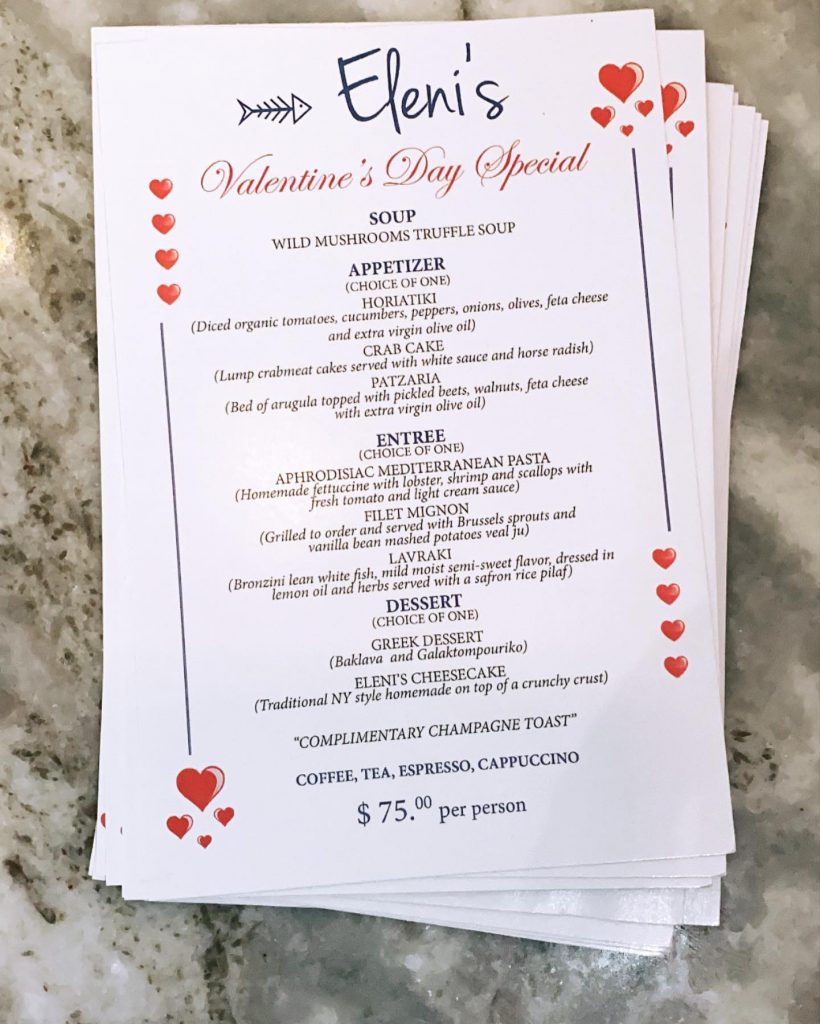 Eleni's
Valentine's Day Special
SOUP
WILD MUSHROOMS TRUFFLE SOUP
APPETIZER
(CHOICE OF ONE)
HORIATIKI
(Diced organic tomatoes, cucumbers, peppers, onions, olives, feta cheese
and extra virgin olive oil)
CRAB CAKE
(Lump crabmeat cakes served with white sauce and horse radish)
PATZARIA
(Bed of arugula topped with pickled beets, walnuts, feta cheese
with extra virgin olive oil)
ENTREE
(CHOICE OF ONE)
APHRODISIAC MEDITERRANEAN PASTA
(Homemade fettuccine with lobster, shrimp and scallops with
fresh tomato and light cream sauce)
FILET MIGNON
(Grilled to order and served with Brussels sprouts and
vanilla bean mashed potatoes veal ju)
LAVRAKI
(Bronzini lean white fish, mild moist semi-sweet flavor, dressed in
lemon oil and herbs served with a safron rice pilaf)
DESSERT
(CHOICE OF ONE)
GREEK DESSERT
(Baklava and Galaktompouriko)
ELENI'S CHEESECAKE
(Traditional NY style homemade on top of a crunchy crust)
"COMPLIMENTARY CHAMPAGNE TOAST"
COFFEE, TEA, ESPRESSO, CAPPUCCINO
$ 75.00 per person